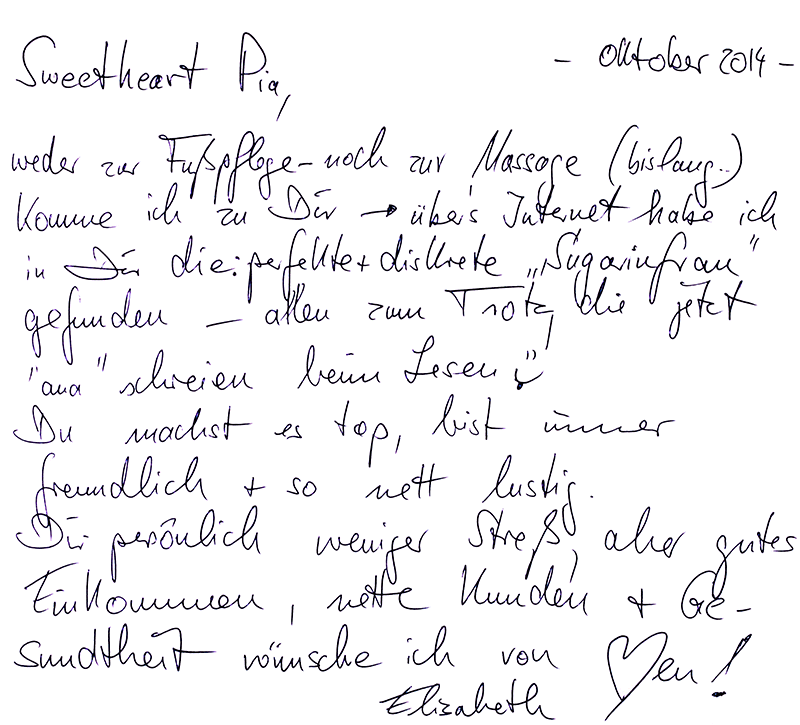 Sweetheart Pia,
- Oktober 2014 -
weder zur Fußpflege - noch zur Massage (bislang..)
Komme ich zu Dir → übers Internet habe ich
in Dir die: perfekte + diskrete „Sugarinfrau"
gefunden - allen zum Trotz, die jetzt
"aua" schreien beim Lesen
Du machst es top, bist immer
freundlich + so nett lustig.
Dir persönlich weniger Streß, aber gutes
Einkommen, nette Kunden + Ge-
sundtheit wünsche ich von ♡en!
Elizabeth